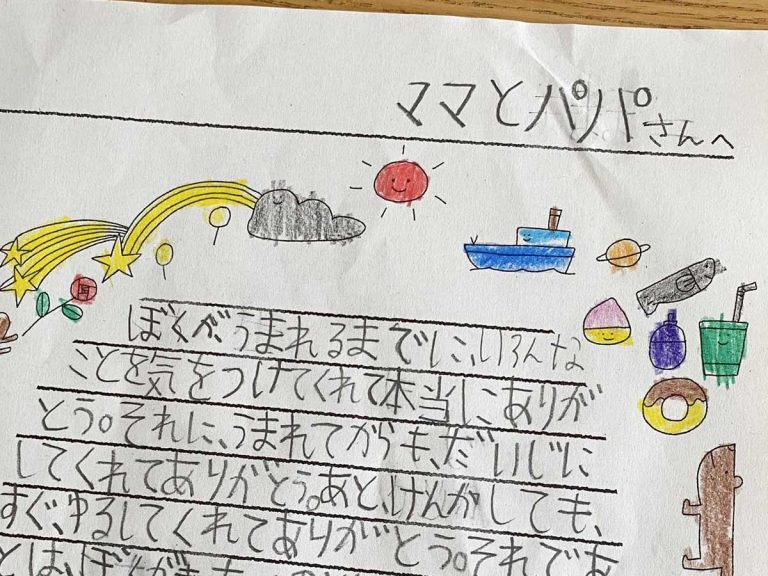 ママとパパさんへ
ぼくが、うまれるまでに、いろんな
ことを気をつけてくれて本当にありが
とう。それに、うまれてからも、だいじに
してくれてありがとう。あと、けんかしても、
すぐ、ゆるしてくれてありがとう。それであ
とは、ぼくが